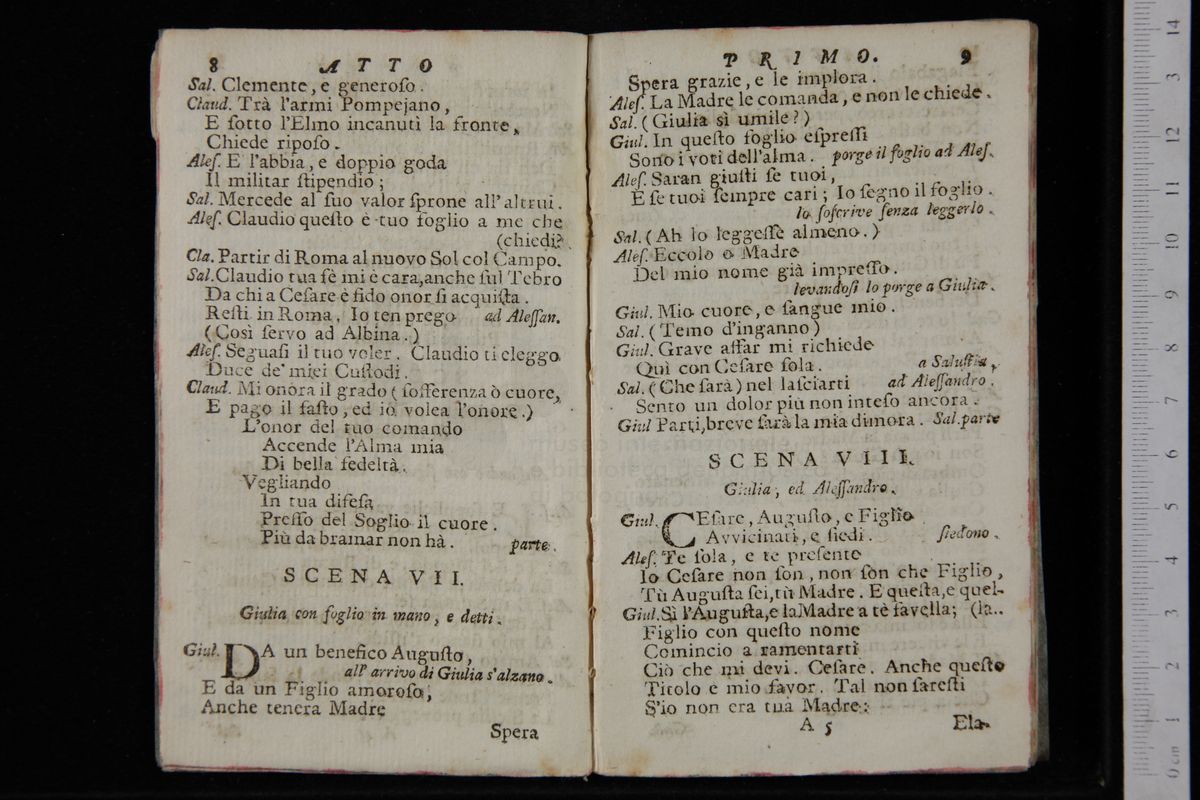 8 ATTO
Sal. Clemente, e generoſo.
Claud. Trà l'armi Pompejano,
E ſotto l'Elmo incanuti la fronte,
Chiede ripoſo.
Aleſ. E l'abbia, e doppio goda
Il militar ſtipendio;
Sal. Mercede al ſuo valor ſprone all'altrui.
Aleſ. Claudio queſto è tuo foglio a me che
(chiedi?
Cla. Partir di Roma al nuovo Sol col Campo.
Sal. Claudio tua fè mi è cara, anche ſul Tebro
Da chi a Ceſare è fido onor ſi acquiſta.
Reſti in Roma. Io ten prego ad Aleſſan.
(Così ſervo ad Albina.)
Aleſ. Seguaſi il tuo voler. Claudio ti eleggo
Duce de' miei Cuſtodi.
Claud. Mi onora il grado (ſofferenza ò cuore,
E pago il faſto, ed io volea l'onore.)
L'onor del tuo comando
Accende l'Alma mia
Di bella fedeltà.
Vegliando
In tua difeſa
Preſſo del Soglio il cuore.
Più da bramar non hà. parte.
SCENA VII.
Giulia con foglio in mano, e detti.
Giul. DA un benefico Auguſto,
all' arrivo di Giulia s'alzano.
E da un Figlio amoroſo,
Anche tenera Madre
Spera
PRIMO. 9
Spera grazie, e le implora.
Aleſ. La Madre le comanda, e non le chiede.
Sal. (Giulia sì umile?)
Giul. In queſto foglio eſpreſſi
Sono i voti dell'alma. porge il foglio ad Aleſ.
Aleſ. Saran giuſti ſe tuoi,
E ſe tuoi ſempre cari; Io ſegno il foglio.
lo ſoſcrive ſenza leggerlo.
Sal. (Ah lo leggeſſe almeno.)
Aleſ. Eccolo o Madre
Del mio nome già impreſſo.
levandoſi lo porge a Giulia.
Giul. Mio cuore, e ſangue mio.
Sal. (Temo d'inganno)
Giul. Grave affar mi richiede
Quì con Ceſare ſola. a Saluſtia,
Sal. (Che ſarà) nel laſciarti ad Aleſſandro.
Sento un dolor più non inteſo ancora.
Giul Parti, breve ſarà la mia dimora. Sal. parte
SCENA VIII.
Giulia, ed Aleſſandro.
Giul. CEſare, Auguſto, e Figlio
Avvicinati, e ſiedi. ſiedono.
Aleſ. Te ſola, e te preſente
Io Ceſare non ſon, non ſon che Figlio,
Tù Auguſta ſei, tù Madre. E queſta, e quel-
Giul. Sì l'Auguſta, e la Madre a tè favella; (la..
Figlio con queſto nome
Comincio a ramentarti
Ciò che mi devi. Ceſare. Anche queſto
Titolo e mio favor. Tal non ſareſti
S'io non era tua Madre:
A 5 Ela-